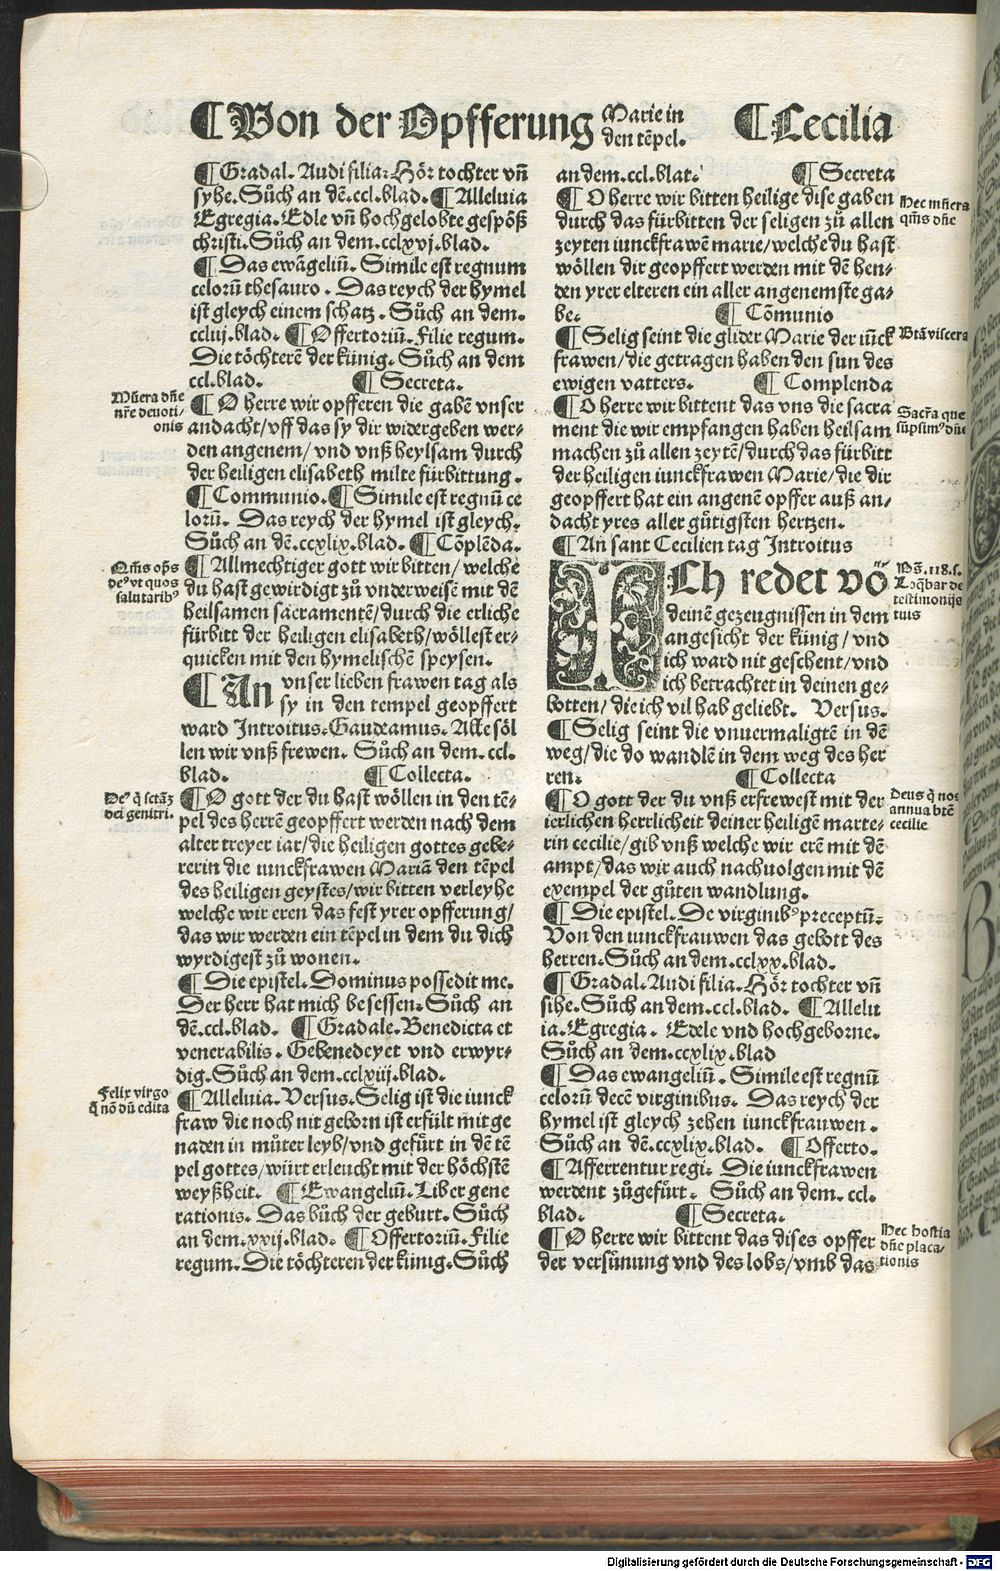 ¶ Von der Opfferung Marie in den tēpel. ¶ Cecilia
¶ Gradal. Audi filia: Hör tochter vñ
syhe. Sůch an dē. ccl. blad. ¶ Alleluia
Egregia. Edle vñ hochgelobte gespōß
christi. Sůch an dem. cclxvj. blad.
¶ Das ewāgeliū. Simile est regnum
celorū thesauro. Das reych der hymel
ist gleych einem schatz. Sůch an dem.
ccluj. blad. ¶ Offertoriū. Filie regum.
Die töchterē der künig. Sůch an dem
ccl. blad. ¶ Secreta.
Mñera dñe
nr̄e deuoti-
onis
¶ O herre wir opfferen die gabē vnser
andacht/vff das sy dir widergeben wer-
den angenem/vnd vnß heylsam durch
der heiligen elisabeth milte fürbittung.
¶ Communio. ¶ Simile est regnū ce
lorū. Das reych der hymel ist gleych.
Sůch an dē. ccxlix. blad. ¶ Cōplēda.
Om̄s op̄s
deꝰ vt quos
salutaribꝰ
¶ Allmechtiger gott wir bitten/welche
du hast gewirdigt zů vnderweisē mit dē
heilsamen sacramentē/durch die erliche
fürbitt der heiligen elisabeth/wöllest er-
quicken mit den hymelischē speysen.
¶ An vnser lieben frawen tag als
sy in den tempel geopffert
ward Introitus. Gaudeamus. Alle söl
len wir vnß frewen. Sůch an dem. ccl.
blad. ¶ Collecta.
Deꝰ q̄ sctāꝫ
dei genitri.
¶ O gott der du hast wöllen in den tē-
pel des herrē geopffert werden nach dem
alter treyer iar/die heiligen gottes gebe-
rerin die iunckfrawen Mariā den tēpel
des heiligen geystes/wir bitten verleyhe
welche wir eren das fest yrer opfferung/
das wir werden ein tēpel in dem du dich
wyrdigest zů wonen.
¶ Die epistel. Dominus possedit me.
Der herr hat mich besessen. Sůch an
dē. ccl. blad. ¶ Gradale. Benedicta et
venerabilis. Gebenedeyet vnd erwyr-
dig. Sůch an dem. cclxiij. blad.
Felix virgo
q̄ nō dū edita
¶ Alleluia. Versus. Selig ist die iunck
fraw die noch nit geborn ist erfült mit ge
naden in můter leyb/vnd gefürt in dē tē
pel gottes/würt erleucht mit der höchstē
weyßheit. ¶ Ewangeliū. Liber gene
rationis. Das bůch der geburt. Sůch
an dem. xxij. blad. ¶ Offertoriū. Filie
regum. Die töchteren der künig. Sůch
an dem. ccl. blat. ¶ Secreta
¶ O herre wir bitten heilige dise gaben
durch das fürbitten der seligen zů allen
zeyten iunckfrawē marie/welche du hast
wöllen dir geopffert werden mit dē hen-
den yrer elteren ein aller angenemste ga-
be. ¶ Cōmunio
Hec mñera
qm̄s dñe
¶ Selig seint die glider Marie der iūck
frawen/die getragen haben den sun des
ewigen vatters. ¶ Complenda
Btā viscera
¶ O herre wir bittent das vns die sacra
ment die wir empfangen haben heilsam
machen zů allen zeytē/durch das fürbitt
der heiligen iunckfrawen Marie/die dir
geopffert hat ein angenē opffer auß an-
dacht yres aller gůtigsten hertzen.
Sacr̄a que
sūpsimꝰ dñe
¶ An sant Cecilien tag Introitus
ICh redet vō
deinē gezeugnissen in dem
angesicht der künig/vnd
ich ward nit geschent/vnd
ich betrachtet in deinen ge-
botten/die ich vil hab geliebt. Versus.
Ps̄. 118. s.
Loq̄bar de
testimonijs
tuis
¶ Selig seint die vnuermaligtē in dē
weg/die do wandlē in dem weg des her
ren. ¶ Collecta
¶ O gott der du vnß erfrewest mit der
ierlichen herrlicheit deiner heiligē marte-
rin cecilie/gib vnß welche wir erē mit dē
ampt/das wir auch nachuolgen mit dē
exempel der gůten wandlung.
Deus q̄ nos
annua btē
cecilie
¶ Die epistel. De virginibꝰ preceptū.
Von den iunckfrauwen das gebott des
herren. Sůch an dem. cclxx. blad.
¶ Gradal. Audi filia. Hör tochter vñ
sihe. Sůch an dem. ccl. blad. ¶ Allelu
ia. Egregia. Edele vnd hochgeborne.
Sůch an dem. ccxlix. blad
¶ Das ewangeliū. Simile est regnū
celorū decē virginibus. Das reych der
hymel ist gleych zehen iunckfrauwen.
Sůch an dē. ccxlix. blad. ¶ Offerto.
¶ Afferrentur regi. Die iunckfrawen
werdent zůgefürt. Sůch an dem. ccl.
blad. ¶ Secreta.
¶ O herre wir bittent das dises opffer
der versünung vnd des lobs/vmb das
Hec hostia
dñe placa-
tionis
Digitalisierung gefördert durch die Deutsche Forschungsgemeinschaft - DFG